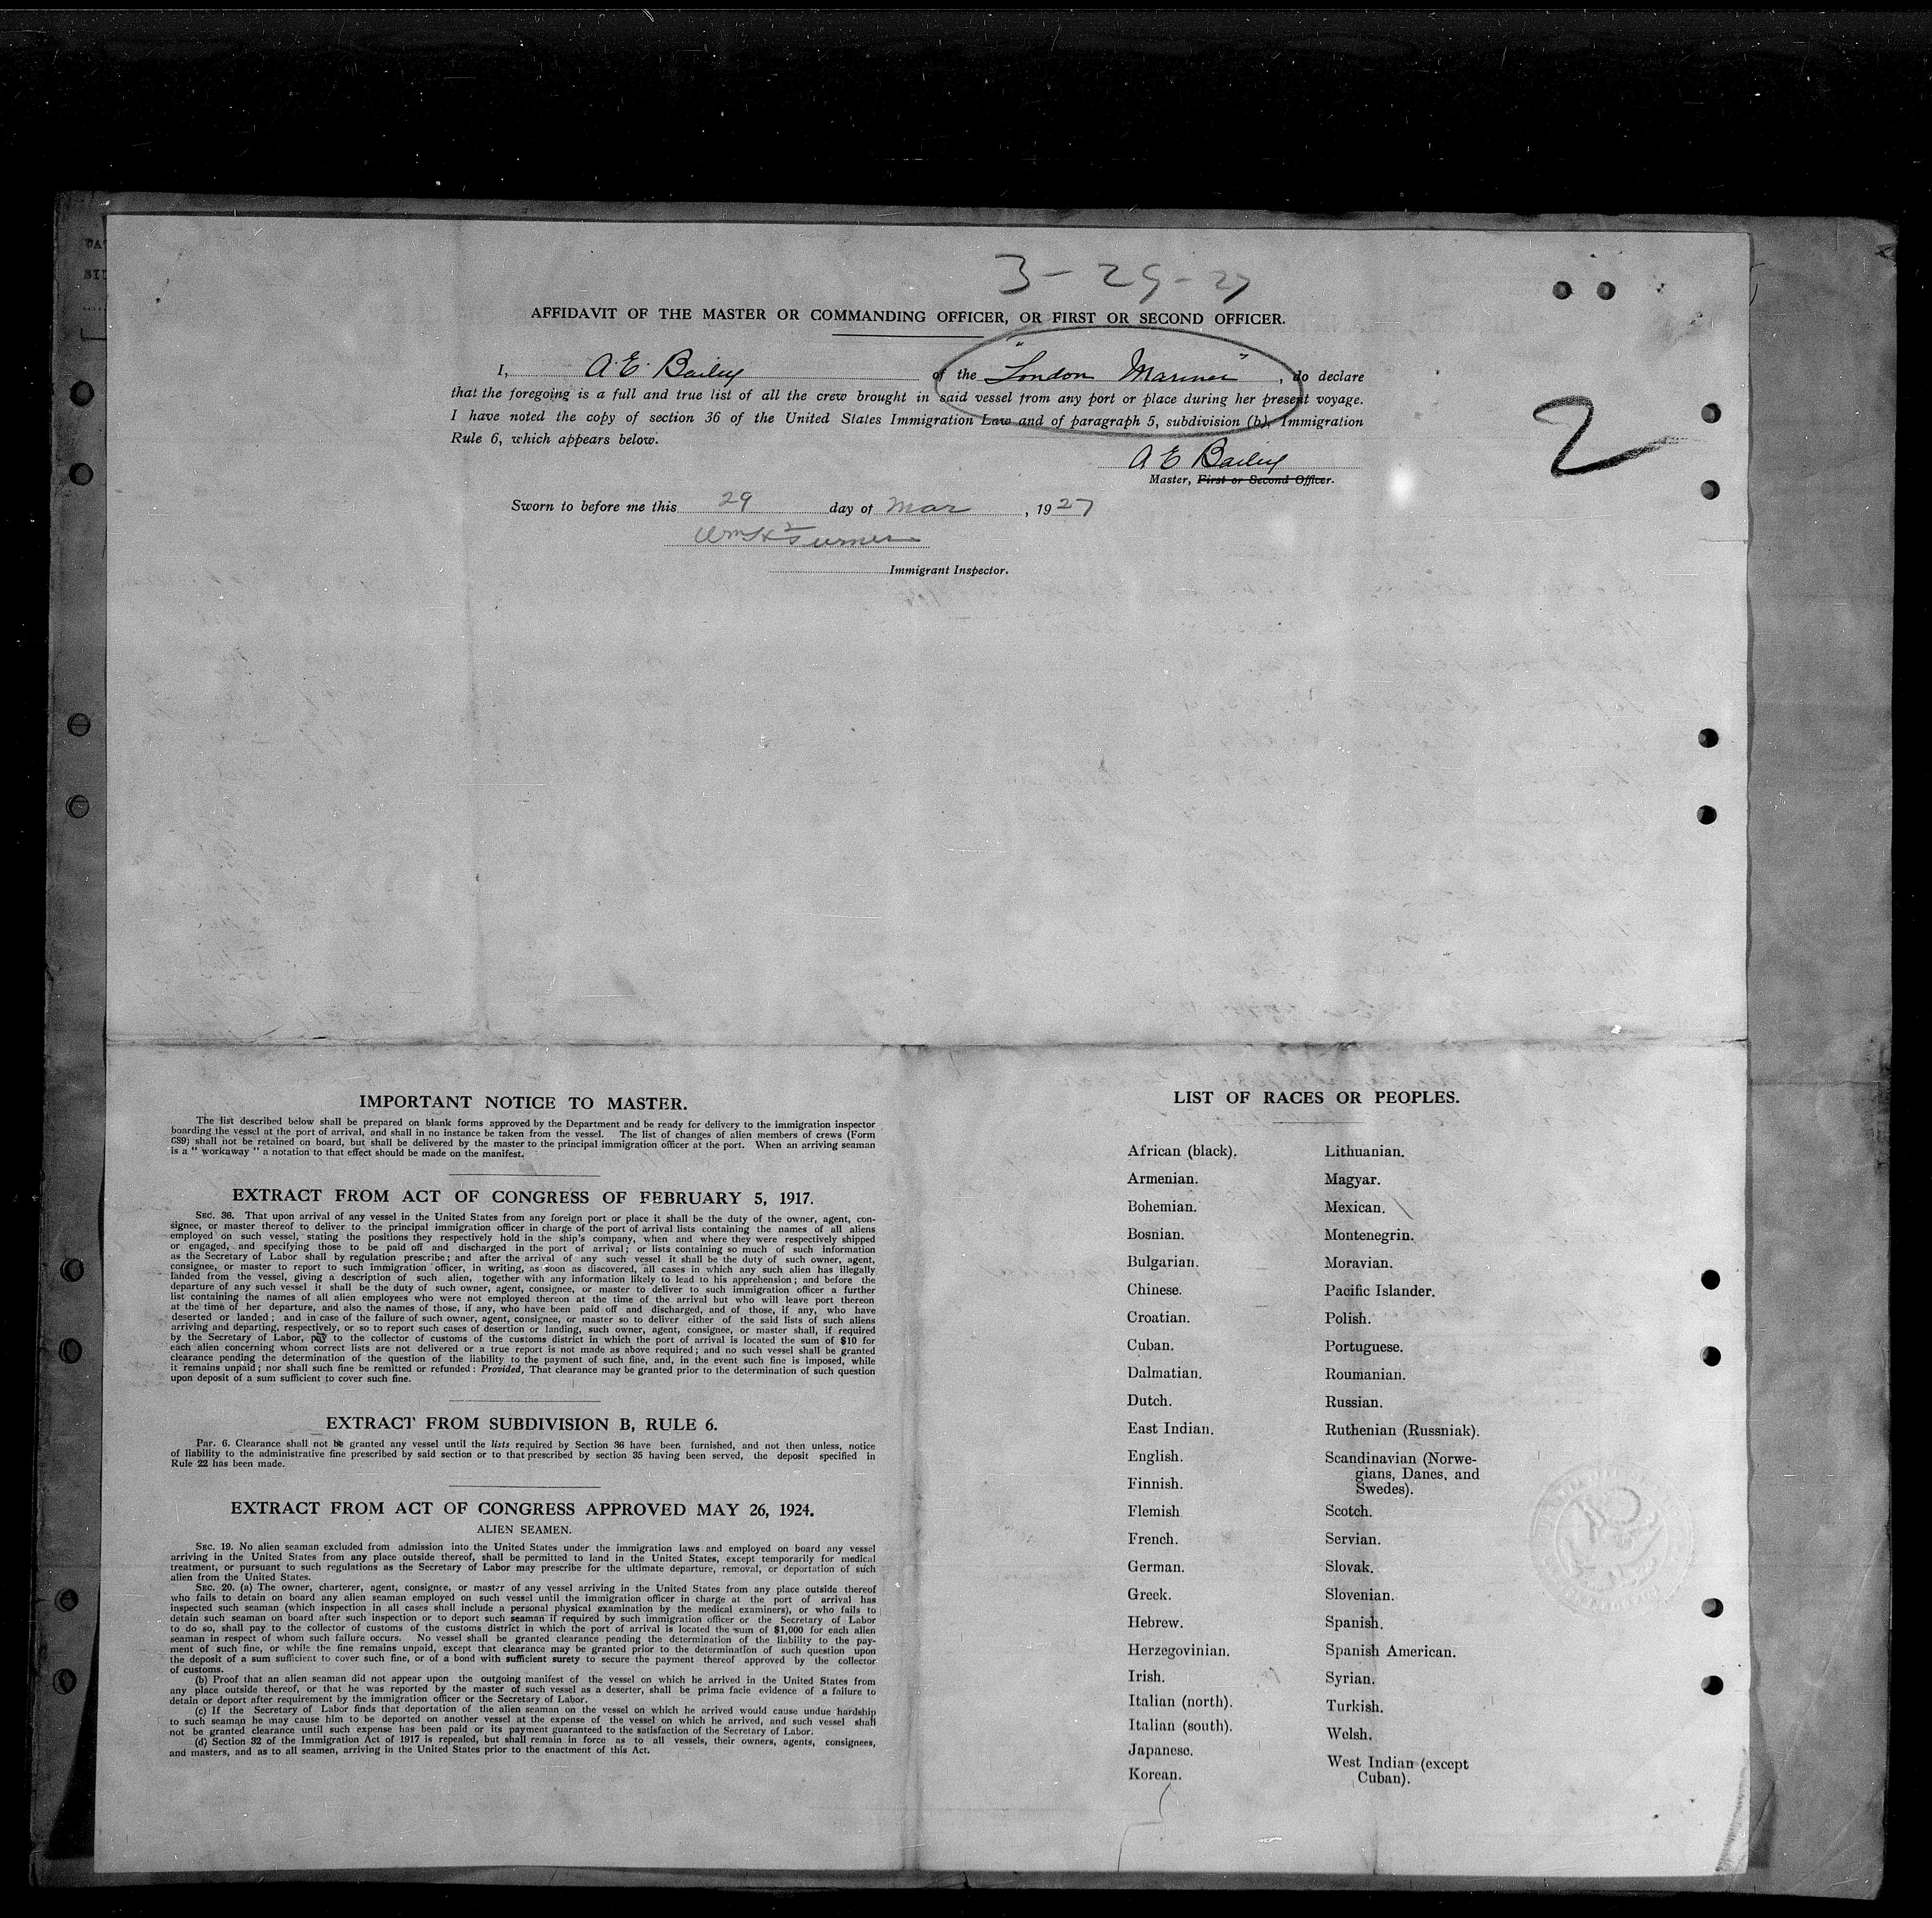 3-29-27
AFFIDAVIT OF THE MASTER OR COMMANDING OFFICER, OR FIRST OR SECOND OFFICER.
I, A. E. Bailey of the "London Mariner", do declare
that the foregoing is a full and true list of all the crew brought in said vessel from any port or place during her present voyage.
I have noted the copy of section 36 of the United States Immigration Law and of paragraph 5, subdivision (b), Immigration
Rule 6, which appears below.
2
A E Bailey
Master, First or Second Officer.
Sworn to before me this 29 day of Mar, 1927
Wm H Turner
Immigrant Inspector.
IMPORTANT NOTICE TO MASTER.
The list described below shall be prepared on blank forms approved by the Department and be ready for delivery to the immigration inspector
boarding the vessel at the port of arrival, and shall in no instance be taken from the vessel. The list of changes of alien members of crews (Form
689) shall not be retained on board, but shall be delivered by the master to the principal immigration officer at the port. When an arriving seaman
is a "workaway" a notation to that effect should be made on the manifest.
EXTRACT FROM ACT OF CONGRESS OF FEBRUARY 5, 1917.
SEC. 36. That upon arrival of any vessel in the United States from any foreign port or place it shall be the duty of the owner, agent, con-
signee, or master thereof to deliver to the principal immigration officer in charge of the port of arrival lists containing the names of all aliens
employed on such vessel, stating the positions they respectively hold in the ship's company, when and where they were respectively shipped
or engaged, and specifying those to be paid off and discharged in the port of arrival; or lists containing so much of such information
as the Secretary of Labor shall by regulation prescribe; and after the arrival of any such vessel it shall be the duty of such owner, agent,
consignee, or master to report to such immigration officer, in writing, as soon as discovered, all cases in which any such alien has illegally
landed from the vessel, giving a description of such alien, together with any information likely to lead to his apprehension; and before the
departure of any such vessel it shall be the duty of such owner, agent, consignee, or master to deliver to such immigration officer a further
list containing the names of all alien employees who were not employed thereon at the time of the arrival but who will leave port thereon
at the time of her departure, and also the names of those, if any, who have been paid off and discharged, and of those, if any, who have
deserted or landed; and in case of the failure of such owner, agent, consignee, or master so to deliver either of the said lists of such aliens
arriving and departing, respectively, or so to report such cases of desertion or landing, such owner, agent, consignee, or master shall, if required
by the Secretary of Labor, pay to the collector of customs of the customs district in which the port of arrival is located the sum of $10 for
each alien concerning whom correct lists are not delivered or a true report is not made as above required; and no such vessel shall be granted
clearance pending the determination of the question of the liability to the payment of such fine, and, in the event such fine is imposed, while
it remains unpaid; nor shall such fine be remitted or refunded: Provided, That clearance may be granted prior to the determination of such question
upon deposit of a sum sufficient to cover such fine.
EXTRACT FROM SUBDIVISION B, RULE 6.
Par. 6. Clearance shall not be granted any vessel until the lists required by Section 36 have been furnished, and not then unless, notice
of liability to the administrative fine prescribed by said section or to that prescribed by section 35 having been served, the deposit specified in
Rule 22 has been made.
EXTRACT FROM ACT OF CONGRESS APPROVED MAY 26, 1924.
ALIEN SEAMEN.
SEC. 19. No alien seaman excluded from admission into the United States under the immigration laws and employed on board any vessel
arriving in the United States from any place outside thereof, shall be permitted to land in the United States, except temporarily for medical
treatment, or pursuant to such regulations as the Secretary of Labor may prescribe for the ultimate departure, removal, or deportation of such
alien from the United States.
SEC. 20. (a) The owner, charterer, agent, consignee, or master of any vessel arriving in the United States from any place outside thereof
who fails to detain on board any alien seaman employed on such vessel until the immigration officer in charge at the port of arrival has
inspected such seaman (which inspection in all cases shall include a personal physical examination by the medical examiners), or who fails to
detain such seaman on board after such inspection or to deport such seaman if required by such immigration officer or the Secretary of Labor
to do so, shall pay to the collector of customs of the customs district in which the port of arrival is located the sum of $1,000 for each alien
seaman in respect of whom such failure occurs. No vessel shall be granted clearance pending the determination of the liability to the pay-
ment of such fine, or while the fine remains unpaid, except that clearance may be granted prior to the determination of such question upon
the deposit of a sum sufficient to cover such fine, or of a bond with sufficient surety to secure the payment thereof approved by the collector
of customs.
(b) Proof that an alien seaman did not appear upon the outgoing manifest of the vessel on which he arrived in the United States from
any place outside thereof, or that he was reported by the master of such vessel as a deserter, shall be prima facie evidence of a failure to
detain or deport after requirement by the immigration officer or the Secretary of Labor.
(c) If the Secretary of Labor finds that deportation of the alien seaman on the vessel on which he arrived would cause undue hardship
to such seaman he may cause him to be deported on another vessel at the expense of the vessel on which he arrived, and such vessel shall
not be granted clearance until such expense has been paid or its payment guaranteed to the satisfaction of the Secretary of Labor.
(d) Section 32 of the Immigration Act of 1917 is repealed, but shall remain in force as to all vessels, their owners, agents, consignees,
and masters, and as to all seamen, arriving in the United States prior to the enactment of this Act.
LIST OF RACES OR PEOPLES.
African (black).
Armenian.
Bohemian.
Bosnian.
Bulgarian.
Chinese.
Croatian.
Cuban.
Dalmatian.
Dutch.
East Indian.
English.
Finnish.
Flemish
French.
German.
Greek.
Hebrew.
Herzegovinian.
Irish.
Italian (north).
Italian (south).
Japanese.
Korean.
Lithuanian.
Magyar.
Mexican.
Montenegrin.
Moravian.
Pacific Islander.
Polish.
Portuguese.
Roumanian.
Russian.
Ruthenian (Russniak).
Scandinavian (Norwe-
gians, Danes, and
Swedes).
Scotch.
Servian.
Slovak.
Slovenian.
Spanish.
Spanish American.
Syrian.
Turkish.
Welsh.
West Indian (except
Cuban).